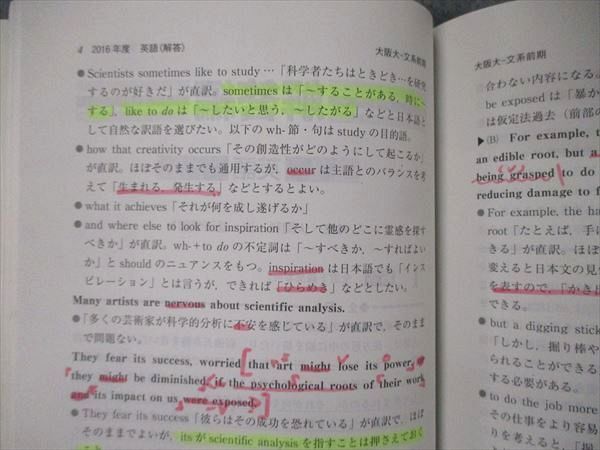 4 2016年度 英語〈解答〉 大阪大-文系前期
●Scientists sometimes like to study …「科学者たちはときどき…を研究
するのが好きだ」が直訳。sometimes は「〜することがある，時に〜
する」，like to do は「〜したいと思う，〜したがる」などと日本語と
して自然な訳語を選びたい。以下の wh- 節・句は study の目的語。
●how that creativity occurs「その創造性がどのようにして起こるか」
が直訳。ほぼそのままでも通用するが，occur は主語とのバランスを考
えて「生まれる，発生する」などとするとよい。
●what it achieves「それが何を成し遂げるか」
●and where else to look for inspiration「そして他のどこに霊感を探す
べきか」が直訳。wh-+to do の不定詞は「〜すべきか，〜すればよい
か」と should のニュアンスをもつ。inspiration は日本語でも「インス
ピレーション」とは言うが，できれば「ひらめき」などとしたい。
Many artists are nervous about scientific analysis.
●「多くの芸術家が科学的分析に不安を感じている」が直訳で，そのまま
で問題ない。
They fear its success, worried that art might lose its power,
they might be diminished, if the psychological roots of their work
and its impact on us were exposed.
●They fear its success「彼らはその成功を恐れている」が直訳で，ほぼ
そのままでよいが，its が scientific analysis を指すことは押さえておく
大阪大-文系前期
合わない内容になる。
be exposed は「暴か
は仮定法過去（前部の
▶(B) For example, t
an edible root, but a
being grasped to do
reducing damage to f
●For example, the ha
root「たとえば，手に
きる」が直訳。ほぼ
変えると日本文の見
を表すので，「かき出
できる。
●but a digging stick
「しかし，掘り棒や
られることができる
する必要がある。
●to do the job more
「その仕事をより容易
りを考えると，「掘